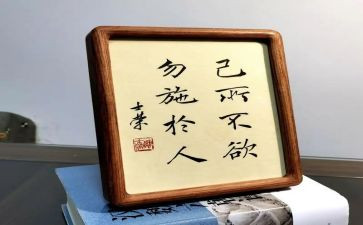 己所不欲
勿施於人
士荣